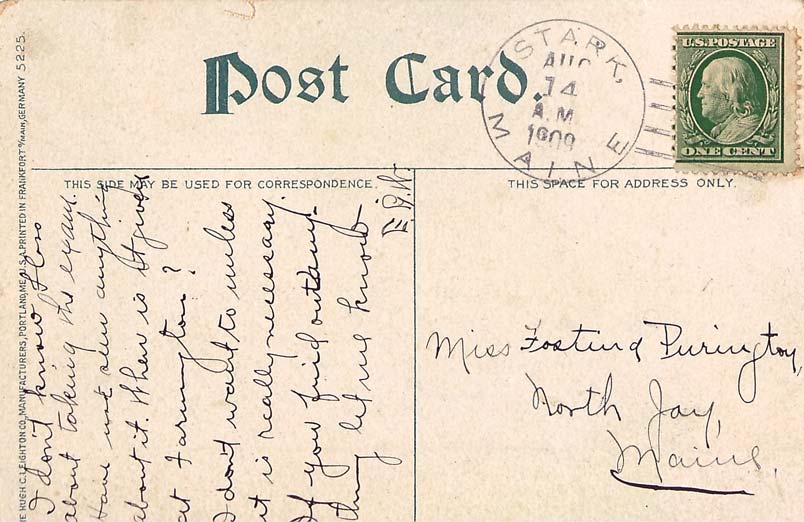 Post Card.
STARK,
AUG
14
A.M.
1909
MAINE
U.S. POSTAGE
ONE CENT
THIS SIDE MAY BE USED FOR CORRESPONDENCE.
THIS SPACE FOR ADDRESS ONLY.
HUGH C. LEIGHTON CO., MANUFACTURERS, PORTLAND, ME., U.S.A. PRINTED IN FRANKFORT o/MAIN, GERMANY 5225.
I don't know Floss
about taking the exam.
Have not seen anything
about it. When is it given
at Farmington?
I don't want to unless
it is really necessary.
If you find out any-
thing let me know
E.G.W.
Miss Purington,
North Jay,
Maine.